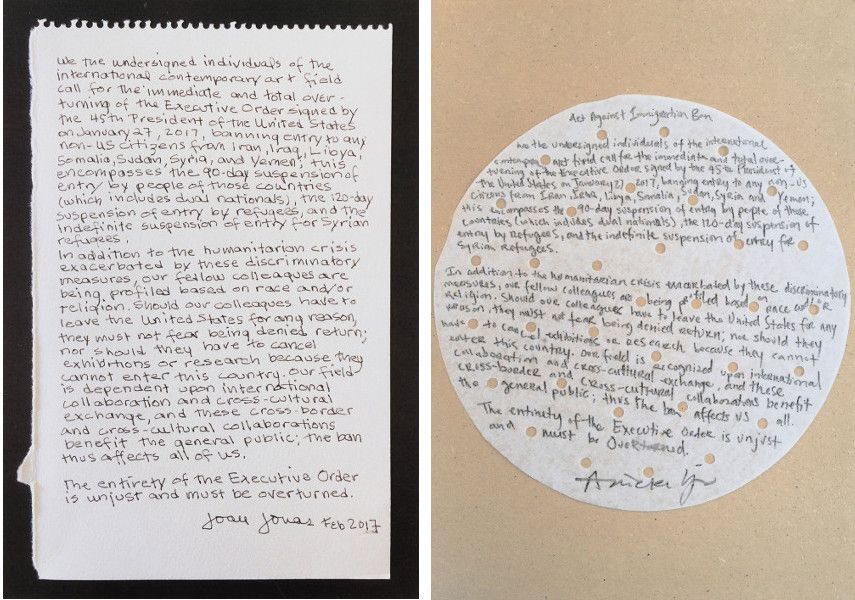 We the undersigned individuals of the
international contemporary art field
call for the immediate and total over-
turning of the Executive Order signed by
the 45th President of the United States
on January 27, 2017, banning entry to any
non-US citizens from Iran, Iraq, Libya,
Somalia, Sudan, Syria, and Yemen; this
encompasses the 90-day suspension of
entry by people of those countries
(which includes dual nationals), the 120-day
suspension of entry by refugees, and the
indefinite suspension of entry for Syrian
refugees.
In addition to the humanitarian crisis
exacerbated by these discriminatory
measures, our fellow colleagues are
being profiled based on race and/or
religion. Should our colleagues have to
leave the United States for any reason,
they must not fear being denied return;
nor should they have to cancel
exhibitions or research because they
cannot enter this country. Our field
is dependent upon international
collaboration and cross-cultural
exchange, and these cross-border
and cross-cultural collaborations
benefit the general public; the ban
thus affects all of us.
The entirety of the Executive Order
is unjust and must be overturned.
Joan Jonas Feb 2017
Act Against Immigration Ban
We the undersigned individuals of the international
art field call for the immediate and total over-
turning of the Executive Order signed by the 45th President of
the United States on January 27 2017, banging entry to any non-US
Citizens from Iran, Iraq, Libya, Somalia, Sudan, Syria and Yemen;
this encompasses the 90-day suspension of entry by people of those
countries (which includes dual nationals), the 120-day suspension of
entry by Refugees, and the indefinite suspension of entry for
Syrian Refugees.
In addition to the humanitarian crisis exacerbated by these discriminatory
measures, our fellow colleagues are being profiled based on race and/or
Religion. Should our colleagues have to leave the United States for any
reason, they must not fear being denied return; nor should they
have to cancel exhibitions or research because they cannot
enter this country. Our field is recognized upon international
collaboration and cross-cultural exchange, and these
cross-border and cross-cultural collaborations benefit
the general public; thus the ban affects us all.
The entirety of the Executive Order is unjust
and must be Overturned.